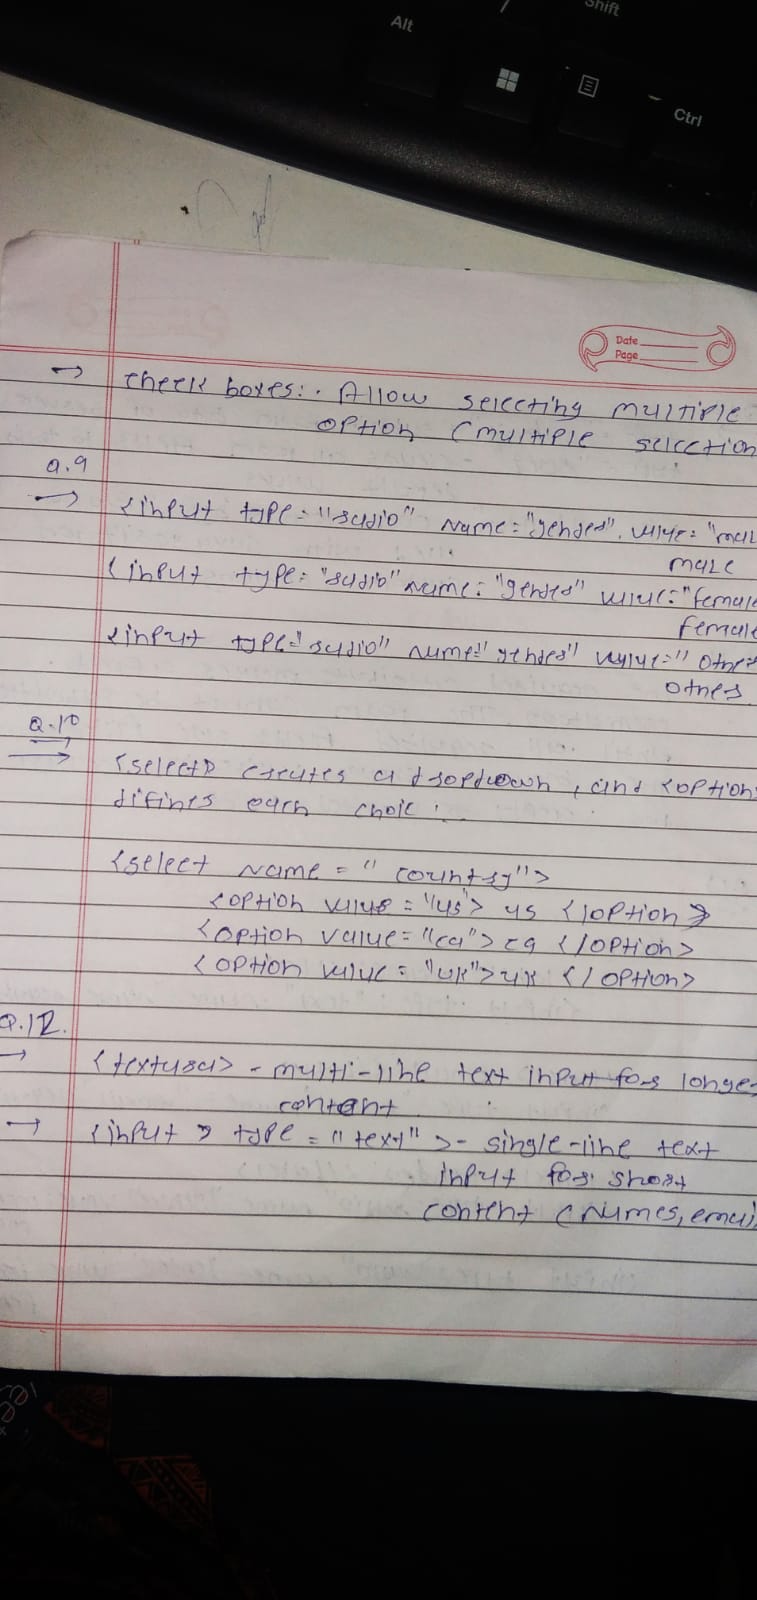 Shift
Alt
Ctrl
Date
Page
→ Check boxes: . Allow selecting multiple
option (multiple selection
Q.9
→ <input type="radio" name="gender". value="mal
male
<input type="radio" name="gender" value="female
female
<input type="radio" name="gender" value="other
other
Q.10
→ <select> creates a dropdown, and <option>
difines each choic.
<select name="country">
<option value="us"> us </option>
<option value="ca"> ca </option>
<option value="uk"> uk </option>
Q.12.
→ <textarea> - multi-line text input for longer
content.
→ <input > type="text" >- single-line text
input for short
content (Names, email